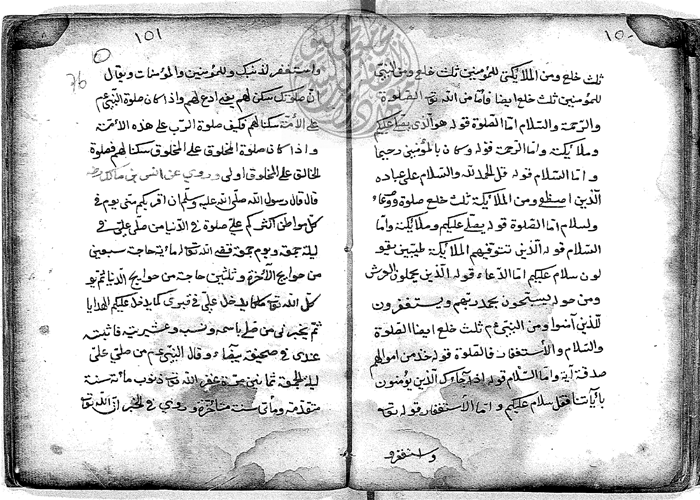 ١٥٠
ثلث خلع ومن الملائكة للمؤمنين ثلث خلع ومن النبي
للمؤمنين ثلث خلع ايضا فاما من الله تع الصلوة
والرحمة والسلام اما الصلوة قوله هو الذي يصلي عليكم
وملائكته واما الرحمة قوله وكان بالمؤمنين رحيما
واما السلام قوله قل الحمد لله والسلام على عباده
الذين اصطفى ومن الملائكة ثلث خلع صلوة ودعاء
وسلام اما الصلوة قوله يصلي عليكم وملائكته واما
السلام قوله الذين تتوفيهم الملائكة طيبين يقو
لون سلام عليكم اما الدعاء قوله الذين يحملون العرش
ومن حوله يسبحون بحمد ربهم ويستغفرون
للذين آمنوا ومن النبي عم ثلث خلع ايضا الصلوة
والسلام والاستغفار فالصلوة قوله خذ من اموالهم
صدقة آية واما السلام قوله اذا جاءك الذين يؤمنون
بآياتنا فقل سلام عليكم واما الاستغفار قوله تع
واستغفر
١٥١
76
واستغفر لذنبك وللمؤمنين والمؤمنات ويقال
ان صلوتك سكن لهم يعني ادع لهم واذا كان صلوة النبي عم
على الامة سكنا لهم فكيف صلوة الرب على هذه الامة
واذا كان صلوة المخلوق على المخلوق سكنا لهم فصلوة
الخالق على المخلوق اولى وروي عن انس بن مالك
قال قال رسول الله صلى الله عليه وسلم ان اقربكم مني يوم في
كل مواطن اكثركم علي صلوة في الدنيا من صلى علي في
ليلة جمعة ويوم جمعة قضى الله له مائة حاجة سبعين
من حوايج الآخرة وثلثين حاجة من حوايج الدنيا ثم يو
كل الله تع ملكا يدخل علي في قبري كما يدخل عليكم الهدايا
ثم يخبرني من صلى باسمه ونسبه وعشيرته فاثبته
عندي في صحيفة بيضاء وقال النبي عم من صلى علي
ليلة الجمعة ثمانين مرة غفر الله له ذنوب مائة سنة
متقدمة ومائتي سنة متأخرة وروي في الخبر ان الله تع